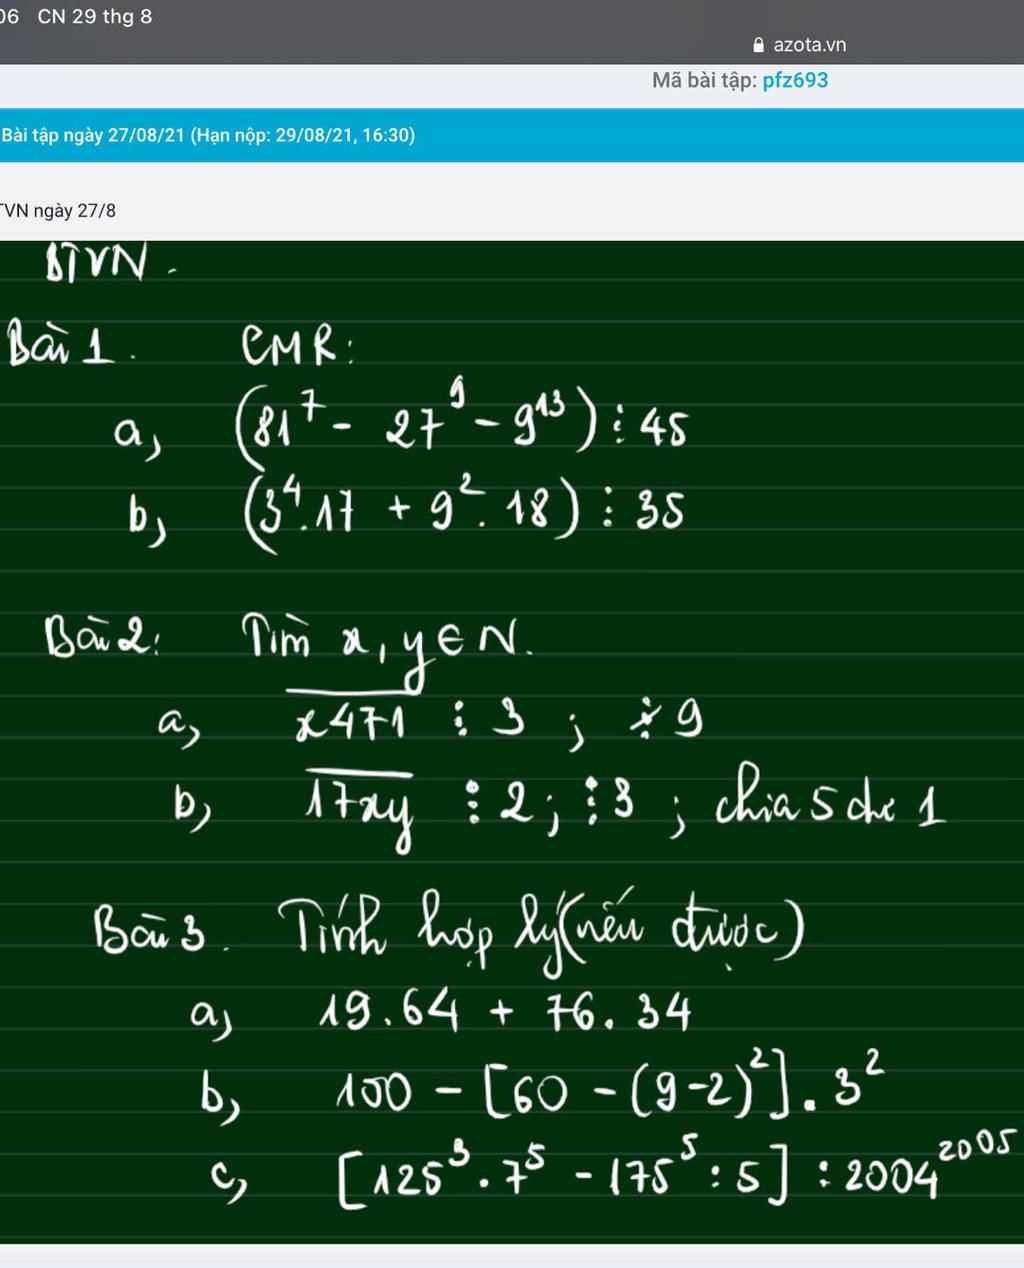 06 CN 29 thg 8
azota.vn
Mã bài tập: pfz693
Bài tập ngày 27/08/21 (Hạn nộp: 29/08/21, 16:30)
TVN ngày 27/8
BTVN.
Bài 1. CMR:
a, (81⁷ - 27⁹ - 9¹³) ⋮ 45
b, (3⁴.17 + 9².18) ⋮ 35
Bài 2: Tìm x, y ∈ N.
a, x̅4̅7̅1̅ ⋮ 3 ; ⋮̸ 9
b, 1̅7̅x̅y̅ ⋮ 2; ⋮ 3 ; chia 5 dư 1
Bài 3. Tính hợp lý (nếu được)
a, 19.64 + 76.34
b, 100 - [60 - (9-2)²].3²
c, [125³.7⁵ - 175⁵ : 5] : 2004²⁰⁰⁵